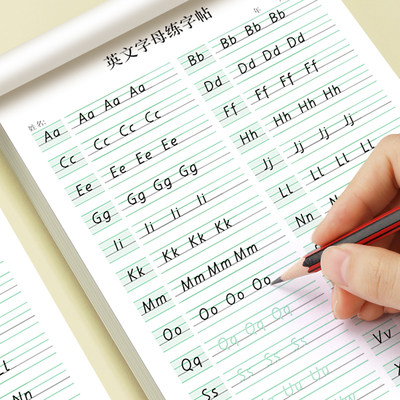 英文字母练字帖
姓名: 年
Aa Aa Aa Aa Bb Bb Bb Bb
Cc Cc Cc Cc Dd Dd Dd Dd
Ee Ee Ee Ee Ff Ff Ff Ff
Gg Gg Gg Gg Hh Hh Hh Hh
Ii Ii Ii Ii Jj Jj Jj Jj
Kk Kk Kk Kk Ll Ll Ll Ll
Mm Mm Mm Mm Nn
Oo Oo Oo Oo
Qq Qq Qq Qq
Ss Ss Ss Ss
Uu Uu
Vv
Nn